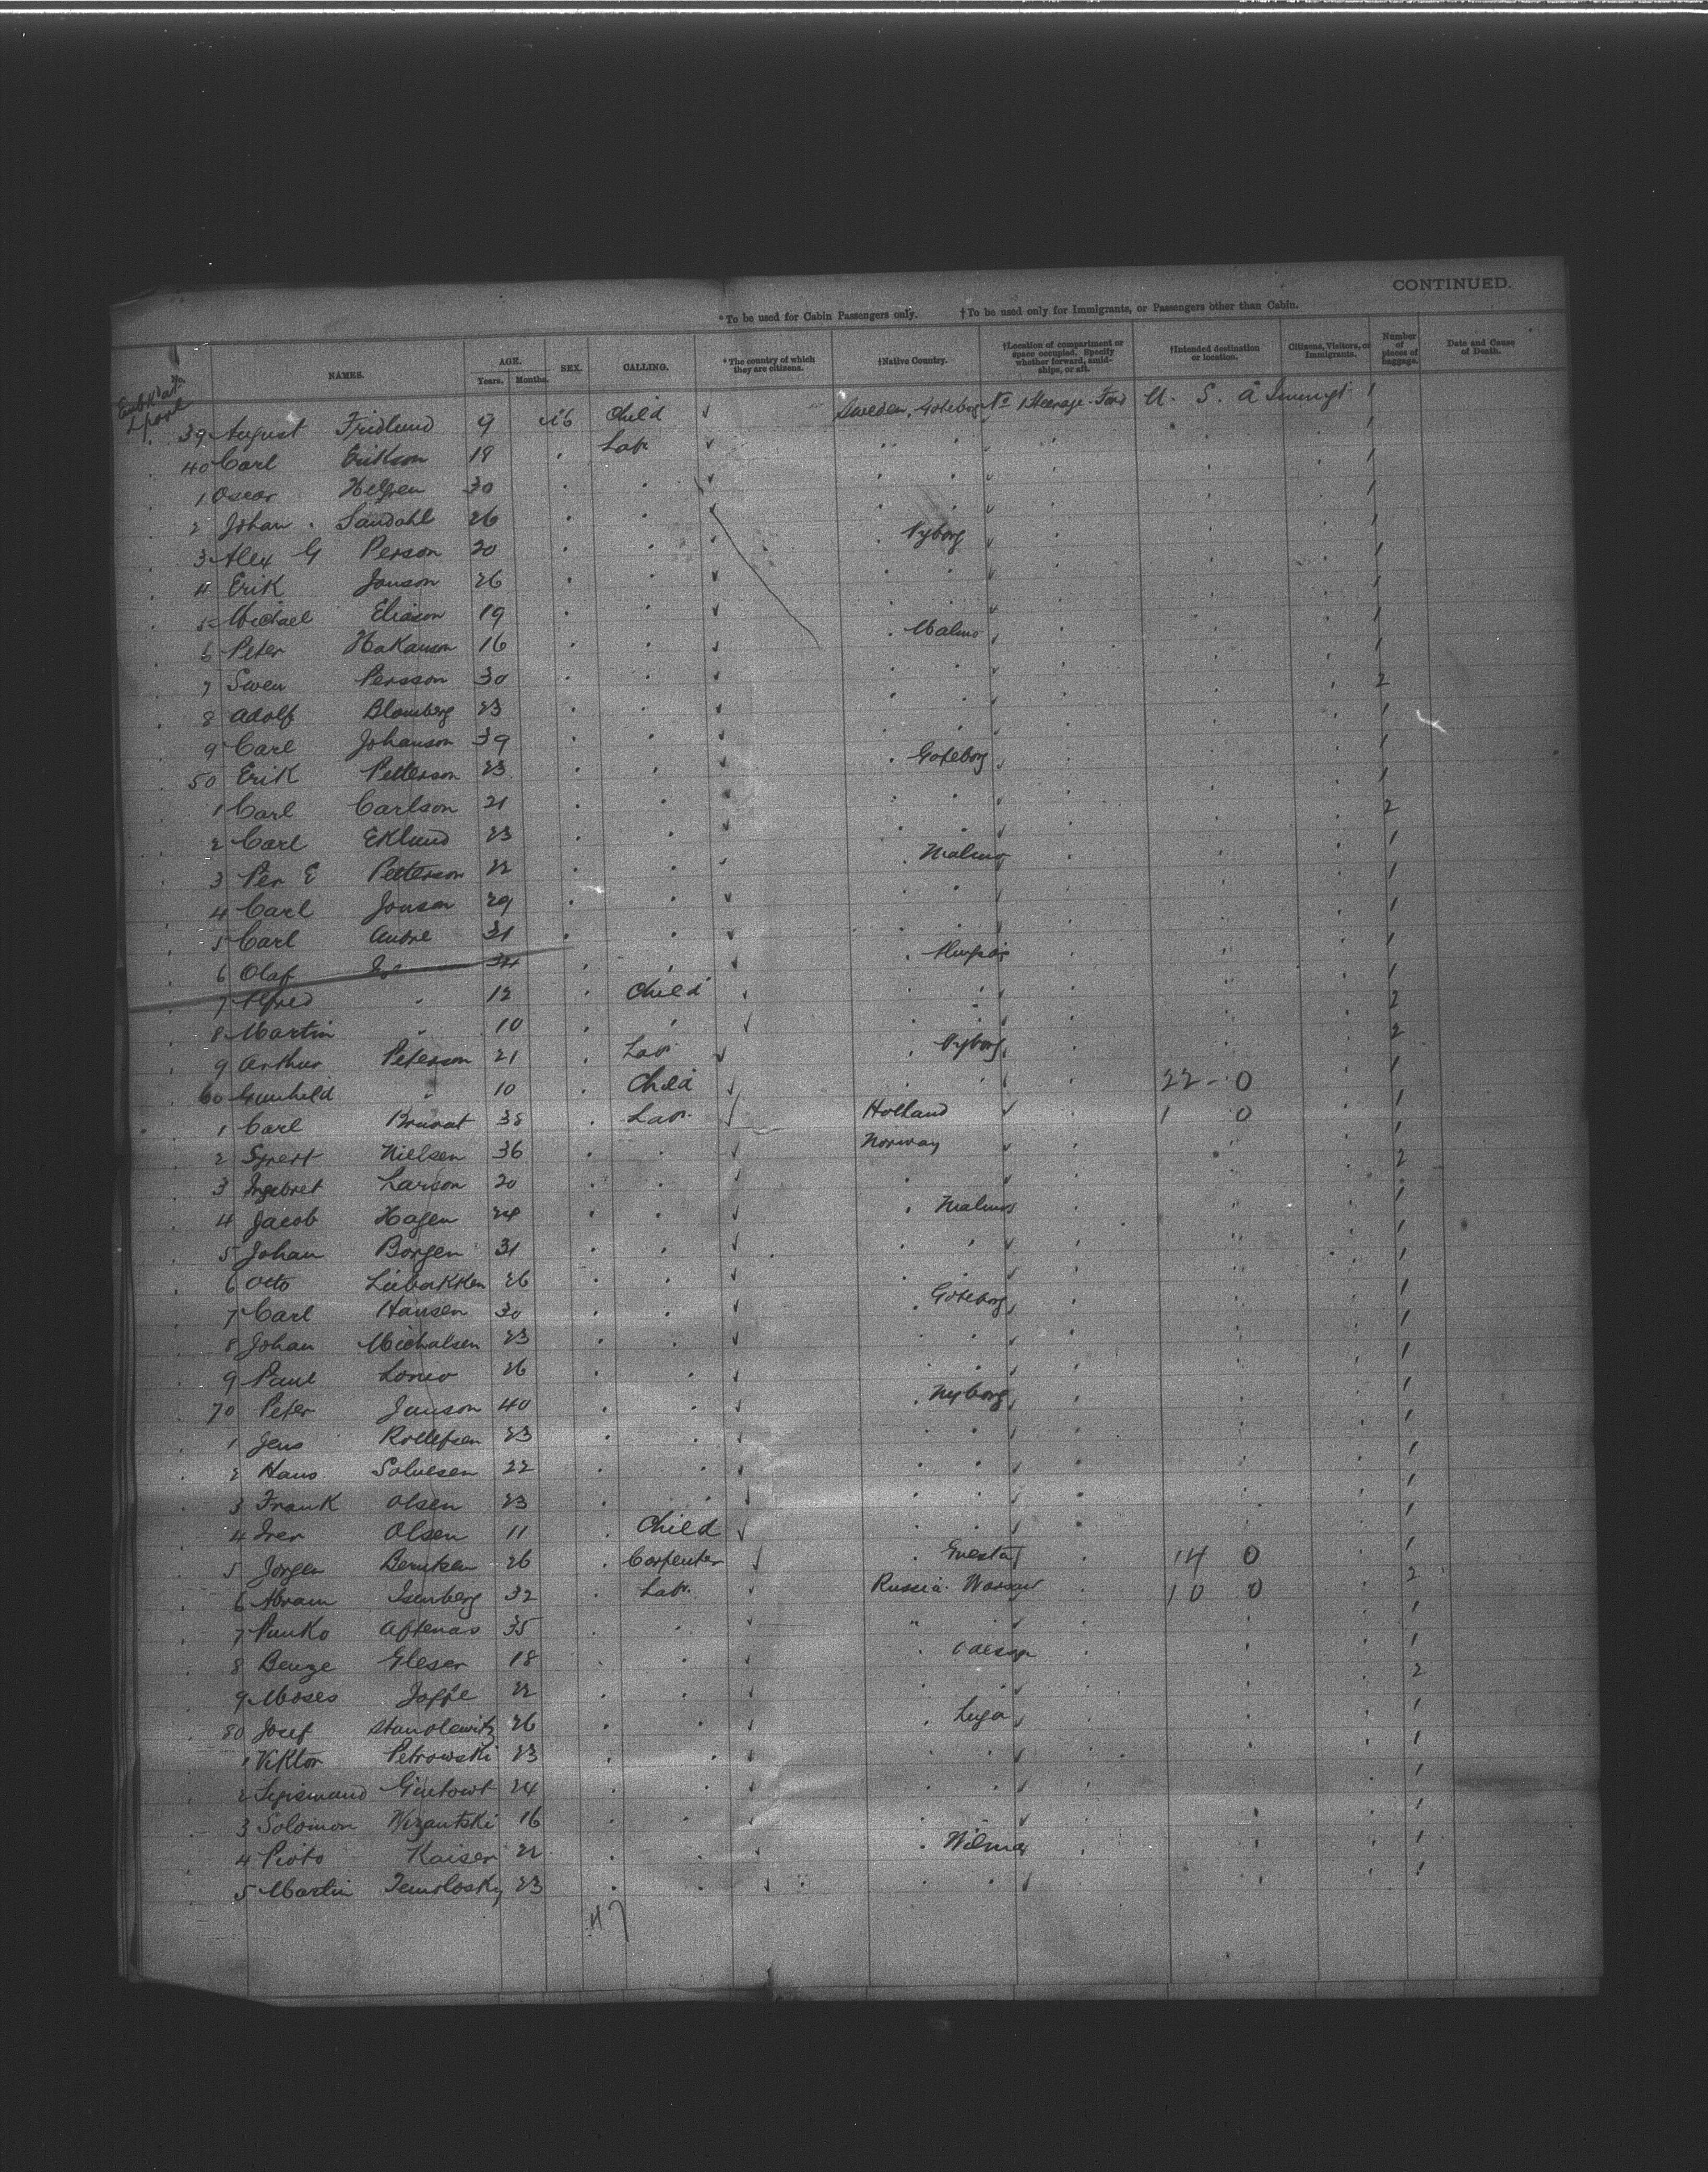 CONTINUED.
*To be used for Cabin Passengers only. †To be used only for Immigrants, or Passengers other than Cabin.
No. NAMES. AGE. Years. Months. SEX. CALLING. *The country of which they are citizens. †Native Country. †Location of compartment or space occupied. Specify whether forward, amidships, or aft. †Intended destination or location. Citizens, Visitors, or Immigrants. Number of pieces of baggage. Date and Cause of Death.
Embkd at
L'pool
39 August Fridlund 9 Child Sweden, Goteborg No 1 Steerage Ford U. S. A Immigt 1
40 Carl Erikson 18 Labr 1
1 Oscar Helgren 30 1
2 Johan Sandahl 26 1
3 Alex G Person 20 Nyborg 1
4 Erik Jonson 26 1
5 Michael Eliason 19 1
6 Peter Hakanson 16 Malmo 1
7 Swen Persson 30 1
8 Adolf Blomberg 23 2
9 Carl Johanson 39 1
50 Erik Petterson 23 Goteborg 1
1 Carl Carlson 21 1
2 Carl Eklund 23 2
3 Per E Petterson 22 Malmo 1
4 Carl Jonson 29 1
5 Carl Andre 31 1
6 Olaf 34 1
7 Alfred " 12 Child 1
8 Martin " 10 2
9 Arthur Peterson 21 Labr Nyborg 2
60 Gunhild " 10 Child 22 - 0 1
1 Carl Brunat 38 Labr Holland 1 0 1
2 Nielsen 36 Norway 1
3 Ingebret Larson 20 2
4 Jacob Hagen 24 Malmo 1
5 Johan Borgen 31 1
6 Otto 26 1
7 Carl Hansen 30 Goteborg 1
8 Johan Michalsen 23 1
9 Paul 26 1
70 Peter Janson 40 Nyborg 1
1 Jens Rollefsen 23 1
2 Hans Solvesen 22 1
3 Frank Olsen 23 1
4 Iver Olsen 11 Child 1
5 Jorgen Berntsen 26 Carpenter 14 0 1
6 Abram Isenberg 32 Labr Russia Warsaw 10 0 2
7 Panko Aftenas 35 1
8 Benze Gleser 18 Odessa 1
9 Moses Joffe 22 2
80 Josef 26 1
1 Viktor Petrowski 23 1
2 Sigismund Gintowt 24 1
3 Solomon Wizantski 16 1
4 Pioto Kaiser 22 Wilna 1
5 Martin 23 1
47